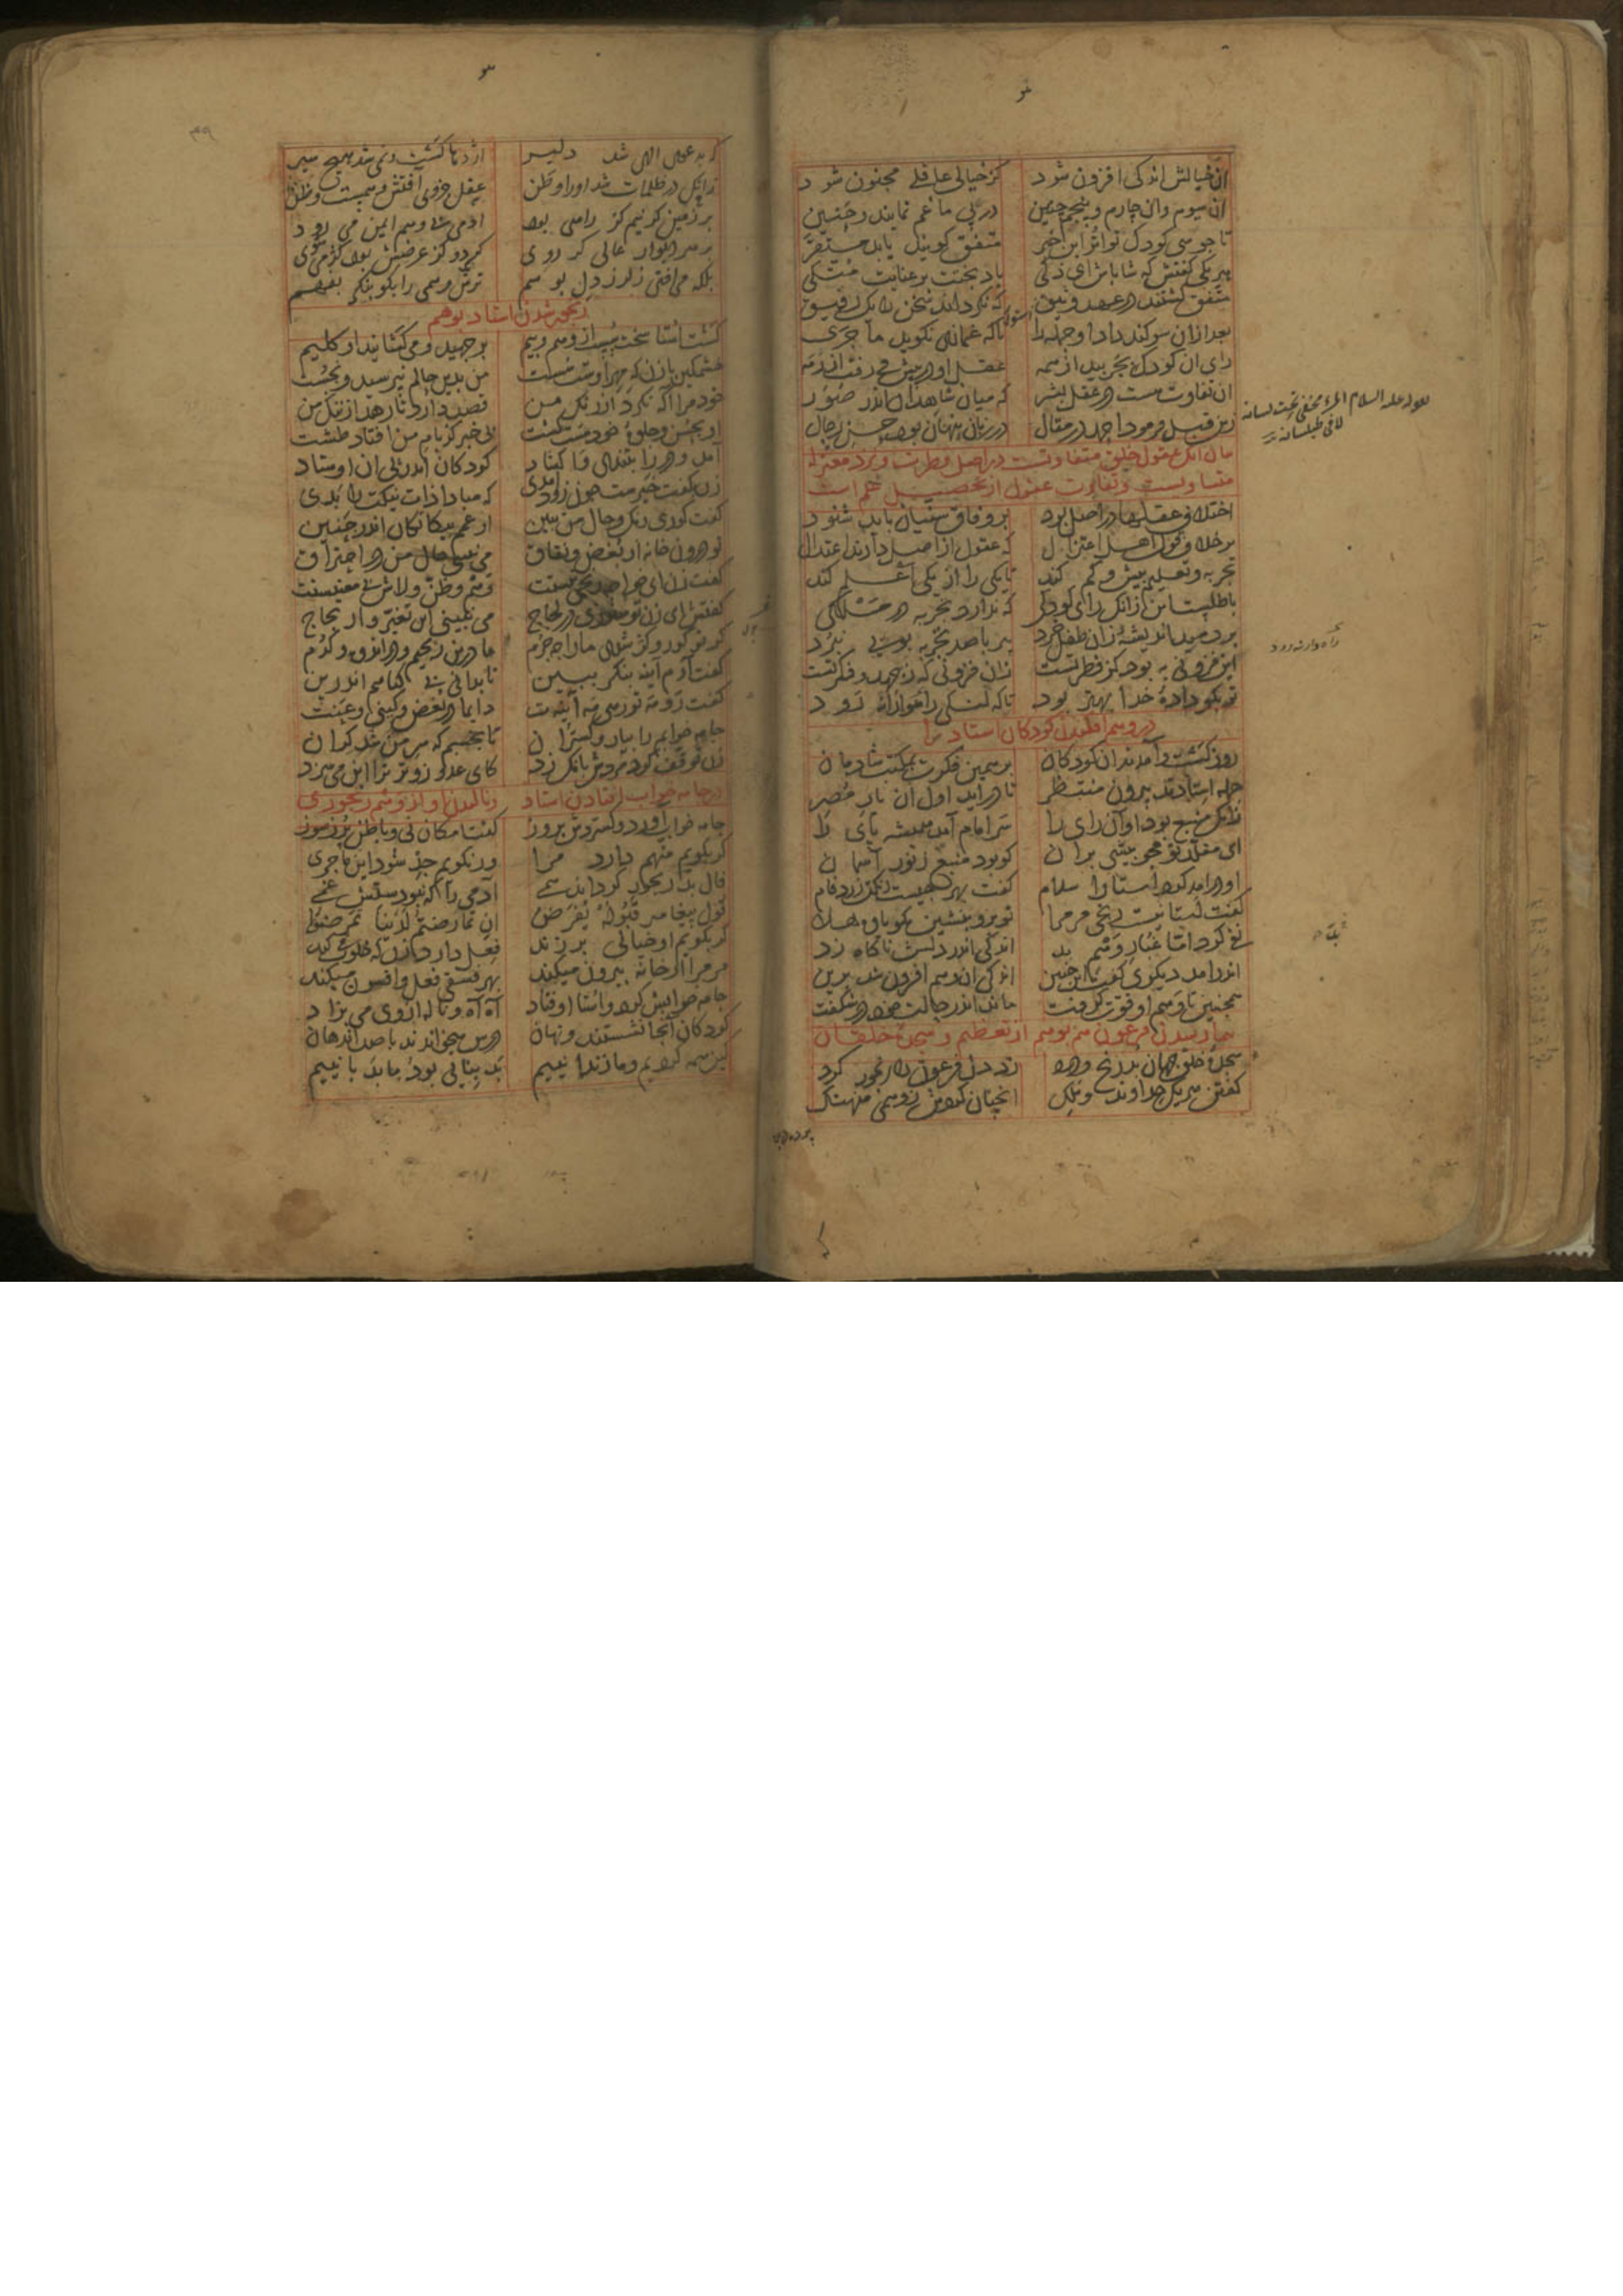 آن خیالش اندکی افزون شود کز خیالی عاقلی مجنون شود
آن سیوم وان چارم و پنجم چنین در پی ما غم نمایند و حنین
تا چو سی کودک تواتر این خبر متفق گویند یابد مستقر
هر یکی گفتش که شاباش ای ذکی باد بختت بر عنایت متکی
متفق گشتند در عهد وثیق که نگرداند سخن را یک رفیق
بعد ازان سوگند داد او جمله را تا که غمازی نگوید ماجری
رای آن کودک بچربید از همه عقل او در پیش می رفت از رمه
آن تفاوت هست در عقل بشر که میان شاهدان اندر صور
زین قبل فرمود احمد در مقال در زبان پنهان بود حسن رجال
قوله علیه السلام المرء مخفی تحت لسانه
لا فی طیلسانه
عقول خلق متفاوتست در اصل فطرت و نزد معتزله
متساویست و تفاوت عقول از تحصیل علم است
اختلاف عقلها در اصل بود بر وفاق سنیان باید شنود
بر خلاف قول اهل اعتزال که عقول از اصل دارند اعتدال
تجربه و تعلیم بیش و کم کند تا یکی را از یکی اعلم کند
باطلست این زانک رای کودکی که ندارد تجربه در مسلکی
بر دمید اندیشه زان طفل خرد پیر با صد تجربه بویی نبرد
این فزونی به بود کز فطرتست زان فزونی که ز جهد و فکرتست
تو بگو داده خدا بهتر بود تا که لنگی راهوارانه رود
در وهم افکندن کودکان استاد را
روز گشت و آمدند آن کودکان بر همین فکرت بمکتب شادمان
جمله استادند بیرون منتظر تا در آید اول آن یار مصر
زانک منبع بود او آن رای را سر امام آید همیشه پای را
ای مقلد تو مجو بیشی بر آن کو بود منبع ز نور آسمان
او در آمد گفت استا را سلام گفت خیرست رنگ زرد فام
گفت استا نیست رنجی مر مرا تو برو بنشین مگو یاوه هلا
نفی کرد اما غبار وهم بد اندکی اندر دلش ناگاه زد
اندر آمد دیگری گفت این چنین اندکی آن وهم افزون شد برین
همچنین تا وهم او قوت گرفت ماند اندر حال خود در شگفت
بیمار شدن فرعون هم بوهم از تعظیم و سجده خلقان
سجده خلق جهان زد در دل فرعون رنجور کرد
گفتن هر یک خداوند و ملک آنچنان کردش ز وهمی منهتک
۳۹
که به دعوی الهی شد دلیر اژدها گشت و نمی شد هیچ سیر
عقل جزوی آفتش وهمست و ظن زانک در ظلمات شد او را وطن
بر زمین گر نیم گز راهی بود آدمی بی وهم ایمن می رود
بر سر دیوار عالی گر روی گر دو گز عرضش بود کژ می شوی
بلک می افتی ز لرز دل بوهم ترس وهمی را نکو بنگر بفهم
رنجور شدن استاد بوهم
گشت استا سخت سست از وهم و بیم بر جهید و می کشانید او گلیم
خشمگین با زن که مهر اوست سست من بدین حالم نپرسید و نجست
خود مرا آگه نکرد از رنگ من قصد دارد تا رهد از ننگ من
او بحسن و جلوه خود مست گشت بی خبر کز بام من افتاد طشت
آمد و در را بتندی وا گشاد کودکان اندر پی آن اوستاد
زن بگفت خیرست چون زود آمدی که مبادا ذات نیکت را بدی
گفت کوری رنگ و حال من ببین از غم بیگانگان اندر حنین
تو درون خانه از بغض و نفاق می نبینی حال من در احتراق
گفت زن ای خواجه رنجی نیستت وهم و ظن و لاش بی معنیستت
گفتش ای زن تو هنوزی در لجاج می نبینی این تغیر و ارتجاج
گر تو کور و کر شدی ما را چه جرم ما درین رنجیم و در اندوه و گرم
گفت آرم آینه بنگر ببین تا بدانی بی گناهم اندرین
گفت رو نه تو رهی نه آینت دایما در بغض و کینی و عنت
جامه خوابم را بیار و گستران تا بخسبم که سر من شد گران
زن توقف کرد مردش بانگ زد کای عدو زوتر ترا این می سزد
در جامه خواب افتادن استاد و نالیدن او از وهم رنجوری
جامه خواب آورد و گسترد گفت امکان نی و باطن پر ز سوز
گر بگویم متهم دارد مرا ور نگویم جد شود این ماجری
فال بد رنجور گرداند همی آدمی را که نبودستش غمی
قول پیغامبر قبوله یفرض ان تمارضتم لدینا تمرضوا
گر بگویم او خیالی بر زند فعل دارد زن که خلوت می کند
مر مرا از خانه بیرون میکند بهر فسقی فعل و افسون میکند
جامه خوابش کرد و استا اوفتاد آه آه و ناله از وی می بزاد
کودکان آنجا نشستند و نهان درس میخواندند با صد اندهان
کین همه کردیم و ما زندانییم بد بنایی بود و ما بد بانییم